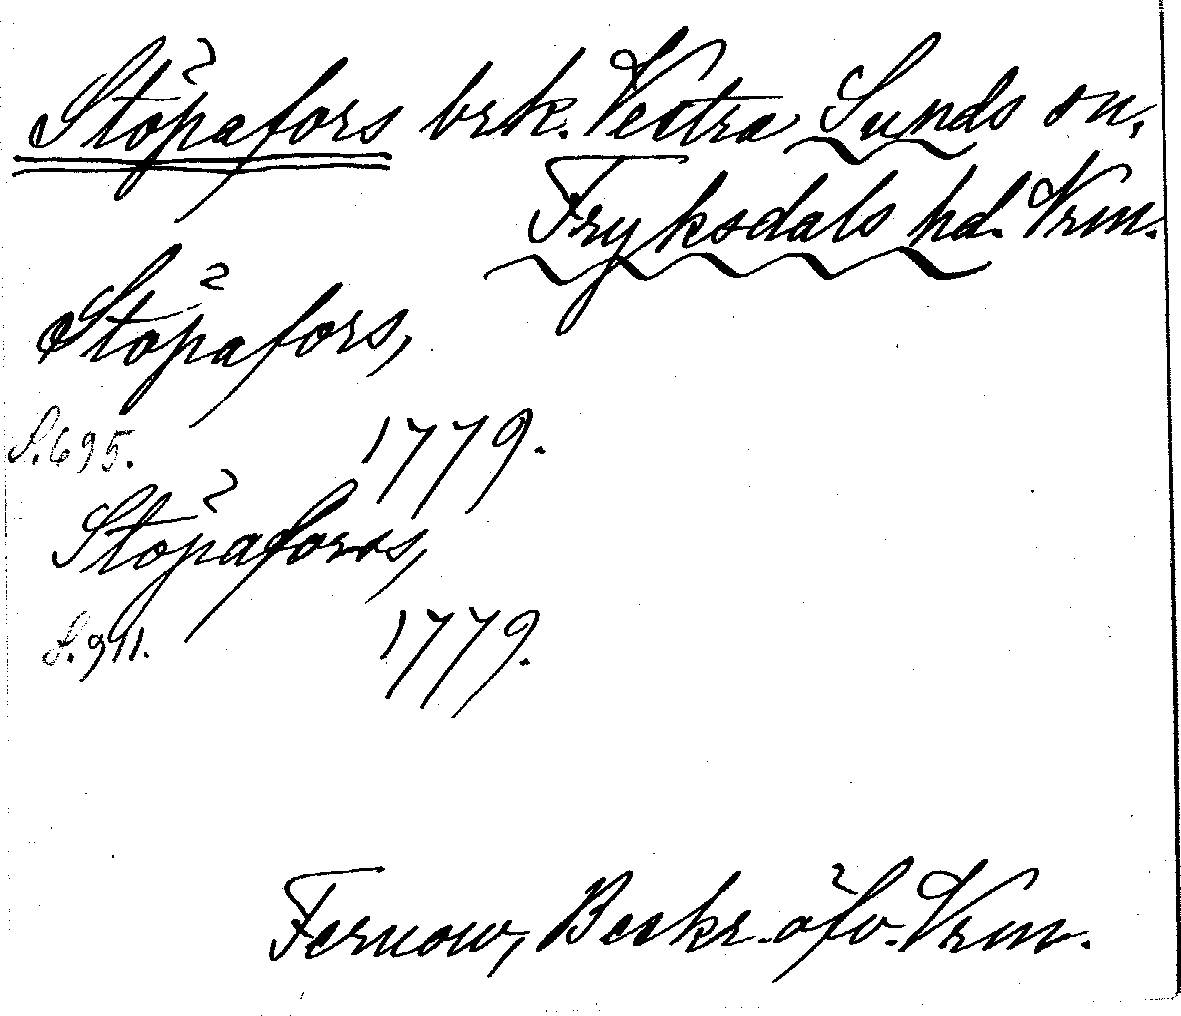 Stöpafors brk. Vestra Sunds sn.
Fryksdals hd. Vrm.
Stöpafors,
S. 695. 1779.
Stöpaforss,
S. 911. 1779.
Fernow, Beskr. öfv. Vrm.